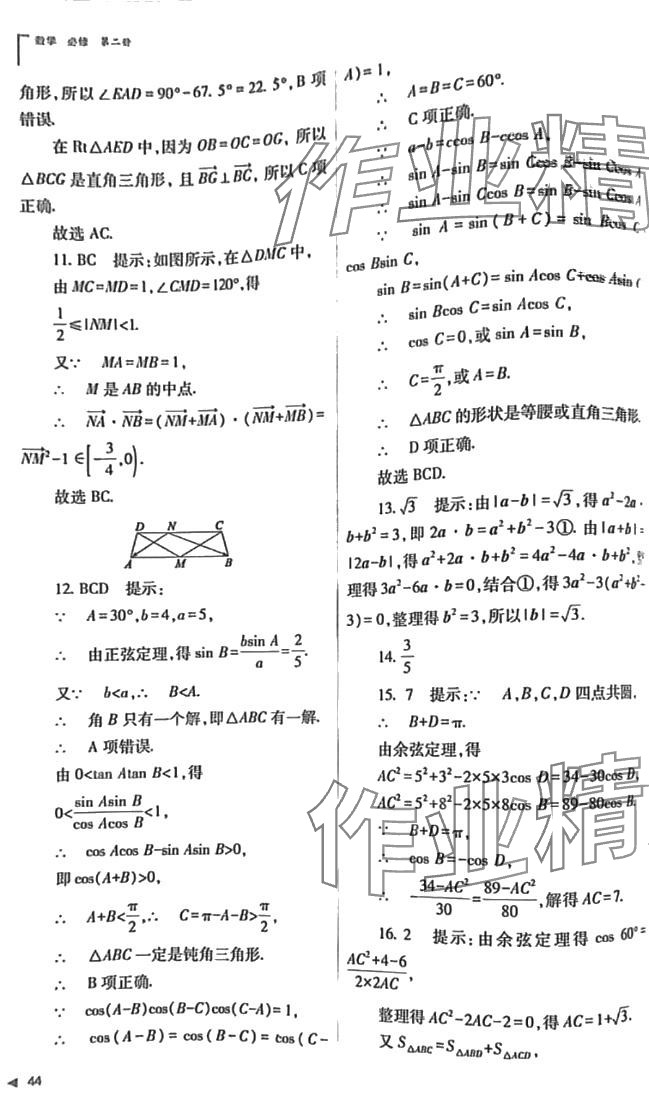 数学 必修 第二册
角形,所以∠EAD=90°-67.5°=22.5°,B项
错误.
在Rt△AED中,因为OB=OC=OG,所以
△BCG是直角三角形,且BG⊥BC,所以C项
正确.
故选AC.
11. BC 提示:如图所示,在△DMC中,
由MC=MD=1,∠CMD=120°,得
1/2≤|NM|<1.
又∵ MA=MB=1,
∴ M是AB的中点.
∴ NA·NB=(NM+MA)·(NM+MB)=
NM²-1∈[-3/4,0).
故选BC.
D N C
A M B
12. BCD 提示:
∵ A=30°,b=4,a=5,
∴ 由正弦定理,得sin B=bsin A/a=2/5.
又∵ b<a,∴ B<A.
∴ 角B只有一个解,即△ABC有一解.
∴ A项错误.
由0<tan Atan B<1,得
0<sin Asin B/cos Acos B<1,
∴ cos Acos B-sin Asin B>0,
即cos(A+B)>0,
∴ A+B<π/2,∴ C=π-A-B>π/2,
∴ △ABC一定是钝角三角形.
∴ B项正确.
∵ cos(A-B)cos(B-C)cos(C-A)=1,
∴ cos(A-B)=cos(B-C)=cos(C-
44
A)=1,
∴ A=B=C=60°.
∴ C项正确.
∵ a-b=ccos B-ccos A,
∴ sin A-sin B=sin Ccos B-sin Ccos A,
∴ sin A-sin Ccos B=sin B-sin Ccos A,
∵ sin A=sin(B+C)=sin Bcos C+
cos Bsin C,
sin B=sin(A+C)=sin Acos C+cos Asin C
∴ sin Bcos C=sin Acos C,
∴ cos C=0,或sin A=sin B,
∴ C=π/2,或A=B.
∴ △ABC的形状是等腰或直角三角形.
∴ D项正确.
故选BCD.
13. √3 提示:由|a-b|=√3,得a²-2a·
b+b²=3,即2a·b=a²+b²-3①.由|a+b|=
|2a-b|,得a²+2a·b+b²=4a²-4a·b+b²,整
理得3a²-6a·b=0,结合①,得3a²-3(a²+b²-
3)=0,整理得b²=3,所以|b|=√3.
14. 3/5
15. 7 提示:∵ A,B,C,D四点共圆.
∴ B+D=π.
由余弦定理,得
AC²=5²+3²-2×5×3cos D=34-30cos D,
AC²=5²+8²-2×5×8cos B=89-80cos B.
∵ B+D=π,
∴ cos B=-cos D,
∴ -34-AC²/30=89-AC²/80,解得AC=7.
16. 2 提示:由余弦定理得cos 60°=
AC²+4-6/2×2AC,
整理得AC²-2AC-2=0,得AC=1+√3.
又S△ABC=S△ABD+S△ACD,
作业精
作业精